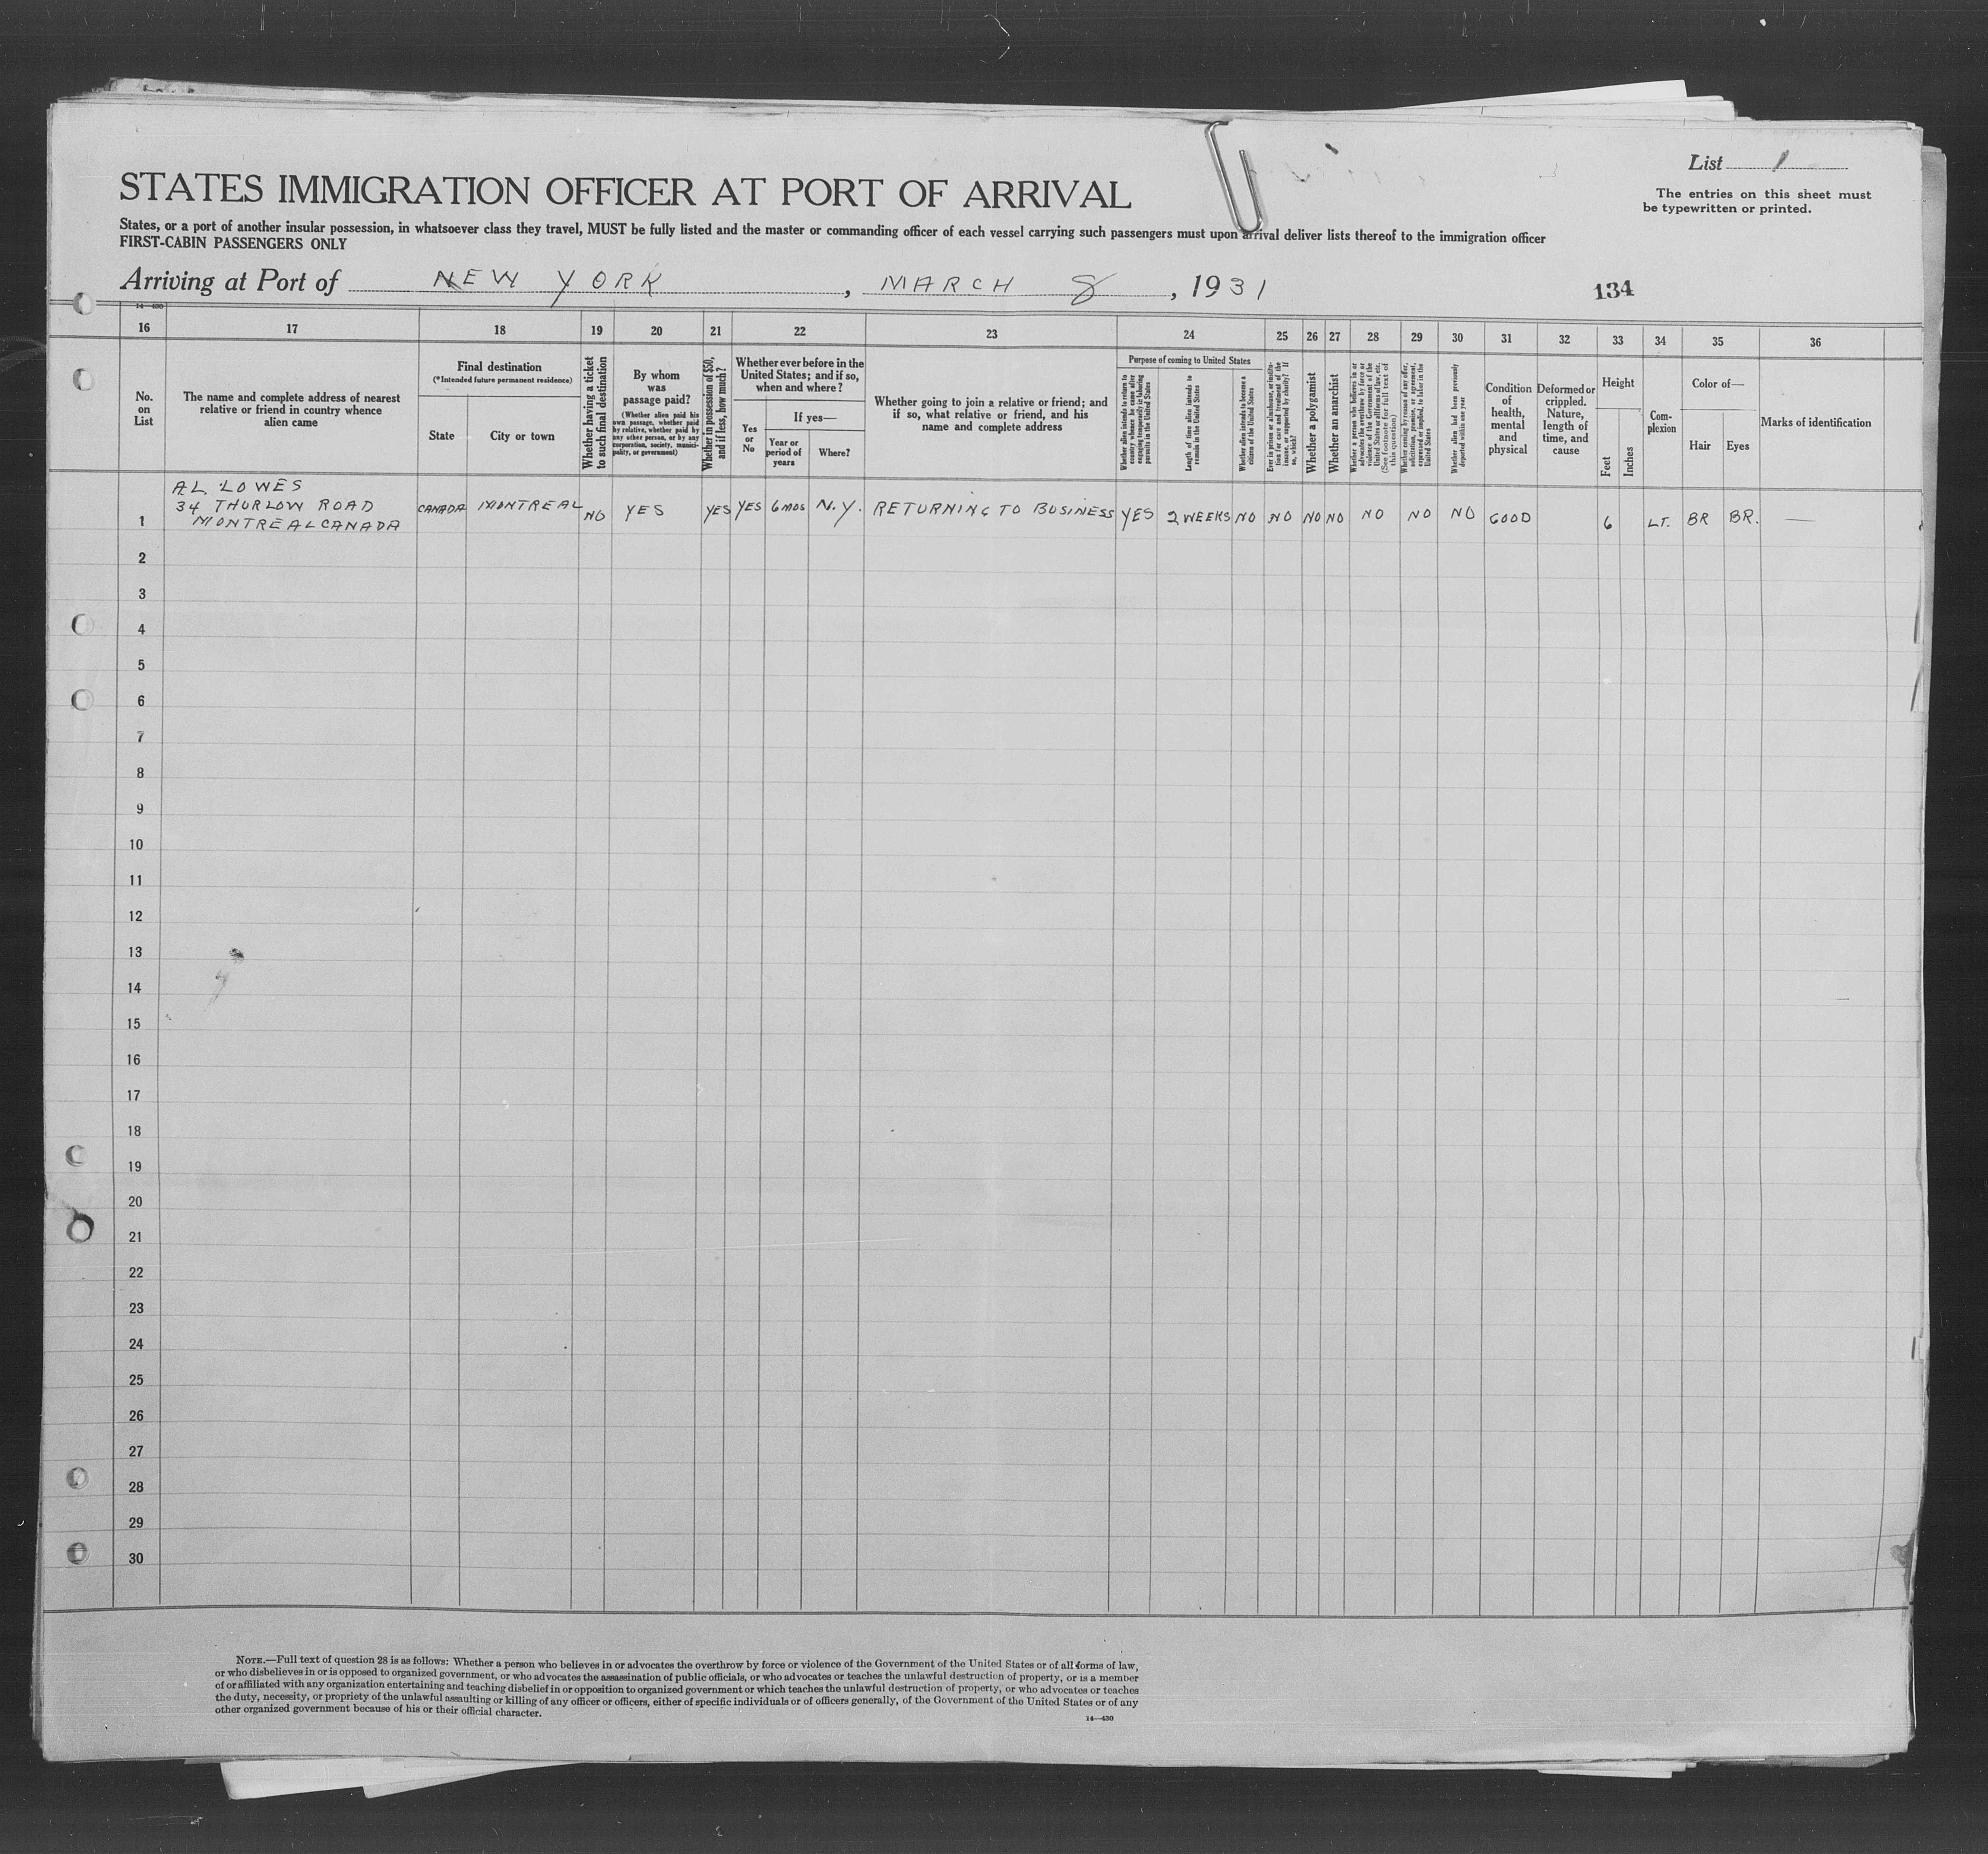 List 1
The entries on this sheet must
be typewritten or printed.
STATES IMMIGRATION OFFICER AT PORT OF ARRIVAL
States, or a port of another insular possession, in whatsoever class they travel, MUST be fully listed and the master or commanding officer of each vessel carrying such passengers must upon arrival deliver lists thereof to the immigration officer
FIRST-CABIN PASSENGERS ONLY
Arriving at Port of NEW YORK, MARCH 8, 1931
134
14—430
16 17 18 19 20 21 22 23 24 25 26 27 28 29 30 31 32 33 34 35 36
No.
on
List
The name and complete address of nearest
relative or friend in country whence
alien came
Final destination
(*Intended future permanent residence)
State
City or town
Whether having a ticket
to such final destination
By whom
was
passage paid?
(Whether alien paid his
own passage, whether paid
by relative, whether paid by
any other person, or by any
corporation, society, munici-
pality, or government)
Whether in possession of $50,
and if less, how much?
Whether ever before in the
United States; and if so,
when and where?
Yes
or
No
If yes—
Year or
period of
years
Where?
Whether going to join a relative or friend; and
if so, what relative or friend, and his
name and complete address
Purpose of coming to United States
Whether alien intends to return to
country whence he came after
engaging temporarily in laboring
pursuits in the United States
Length of time alien intends to
remain in the United States
Whether alien intends to become a
citizen of the United States
Ever in prison or almshouse, or institu-
tion for care and treatment of the
insane, or supported by charity? If
so, which?
Whether a polygamist
Whether an anarchist
Whether a person who believes in or
advocates the overthrow by force or
violence of the Government of the
United States or all forms of law, etc.
(See footnote for full text of
this question)
Whether coming by reason of any offer,
solicitation, promise, or agreement,
expressed or implied, to labor in the
United States
Whether alien had been previously
deported within one year
Condition
of
health,
mental
and
physical
Deformed or
crippled.
Nature,
length of
time, and
cause
Height
Feet
Inches
Com-
plexion
Color of—
Hair
Eyes
Marks of identification
AL LOWES
34 THURLOW ROAD
MONTREAL CANADA
1 CANADA MONTREAL NO YES YES YES 6 MOS N.Y. RETURNING TO BUSINESS YES 2 WEEKS NO NO NO NO NO NO NO GOOD 6 LT. BR BR. —
2
3
4
5
6
7
8
9
10
11
12
13
14
15
16
17
18
19
20
21
22
23
24
25
26
27
28
29
30
NOTE.—Full text of question 28 is as follows: Whether a person who believes in or advocates the overthrow by force or violence of the Government of the United States or of all forms of law,
or who disbelieves in or is opposed to organized government, or who advocates the assassination of public officials, or who advocates or teaches the unlawful destruction of property, or is a member
of or affiliated with any organization entertaining and teaching disbelief in or opposition to organized government or which teaches the unlawful destruction of property, or who advocates or teaches
the duty, necessity, or propriety of the unlawful assaulting or killing of any officer or officers, either of specific individuals or of officers generally, of the Government of the United States or of any
other organized government because of his or their official character.
14—430